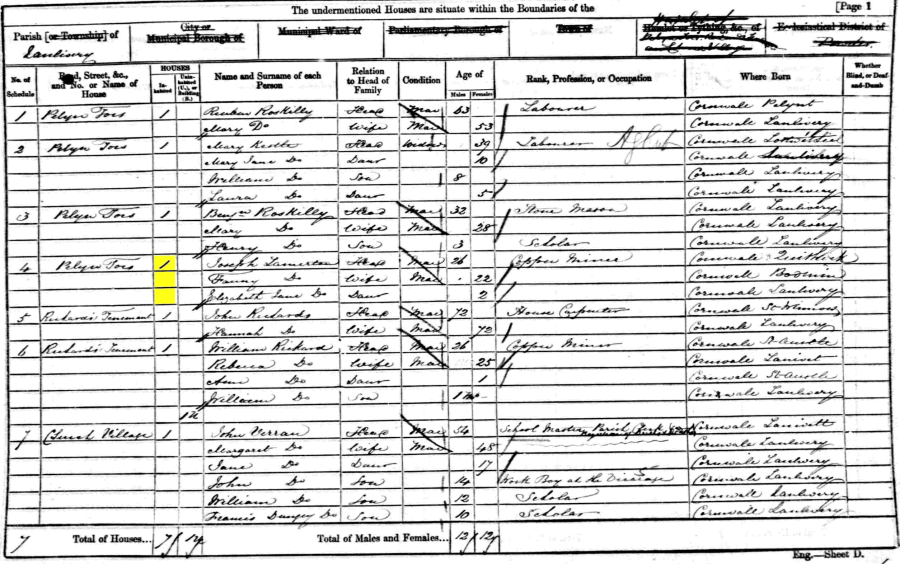 The undermentioned Houses are situate within the Boundaries of the [Page 1
Parish [or Township] of Lanlivery City or Municipal Borough of Municipal Ward of Parliamentary Borough of Town of Hamlet or Tything, &c., of Ecclesiastical District of
No. of Schedule Road, Street, &c., and No. or Name of House HOUSES Inhabited Uninhabited (U.), or Building (B.) Name and Surname of each Person Relation to Head of Family Condition Age of Males Females Rank, Profession, or Occupation Where Born Whether Blind, or Deaf-and-Dumb
1 Pelyn Tors 1 Reuben Roskilly Head Mar 63 Labourer Cornwall Pelynt
Mary Do Wife Mar 53 Cornwall Lanlivery
2 Pelyn Tors 1 Mary Head Widow 39 Labourer Cornwall
Mary Jane Do Daur 10 Cornwall Lanlivery
William Do Son 8 Cornwall Lanlivery
Laura Do Daur 5 Cornwall Lanlivery
3 Pelyn Tors 1 Benjn Roskilly Head Mar 32 Stone Mason Cornwall Lanlivery
Mary Do Wife Mar 28 Cornwall Lanlivery
Henry Do Son 3 Scholar Cornwall Lanlivery
4 Pelyn Tors 1 Joseph Lamerton Head Mar 26 Copper Miner Cornwall
Fanny Do Wife Mar 22 Cornwall Bodmin
Elizabeth Jane Do Daur 2 Cornwall Lanlivery
5 Rickards Tenement 1 John Rickards Head Mar 72 House Carpenter Cornwall St Winnow
Hannah Do Wife Mar 72 Cornwall Lanlivery
6 Rickards Tenement 1 William Rickard Head Mar 26 Copper Miner Cornwall St Austle
Rebecca Do Wife Mar 25 Cornwall Lanivet
Ann Do Daur 1 Cornwall St Austle
William Do Son 1 Mo Cornwall Lanlivery
1U
7 Church Village 1 John Verran Head Mar 54 School Master Parish Clerk Cornwall Lanivett
Margaret Do Wife Mar 48 Cornwall Lanlivery
Jane Do Daur 17 Cornwall Lanlivery
John Do Son 14 Work Boy at the Vicarage Cornwall Lanlivery
William Do Son 12 Scholar Cornwall Lanlivery
Francis Dungey Do Son 10 Scholar Cornwall Lanlivery
7 Total of Houses... 7 1U Total of Males and Females... 12 12
Eng.—Sheet D.